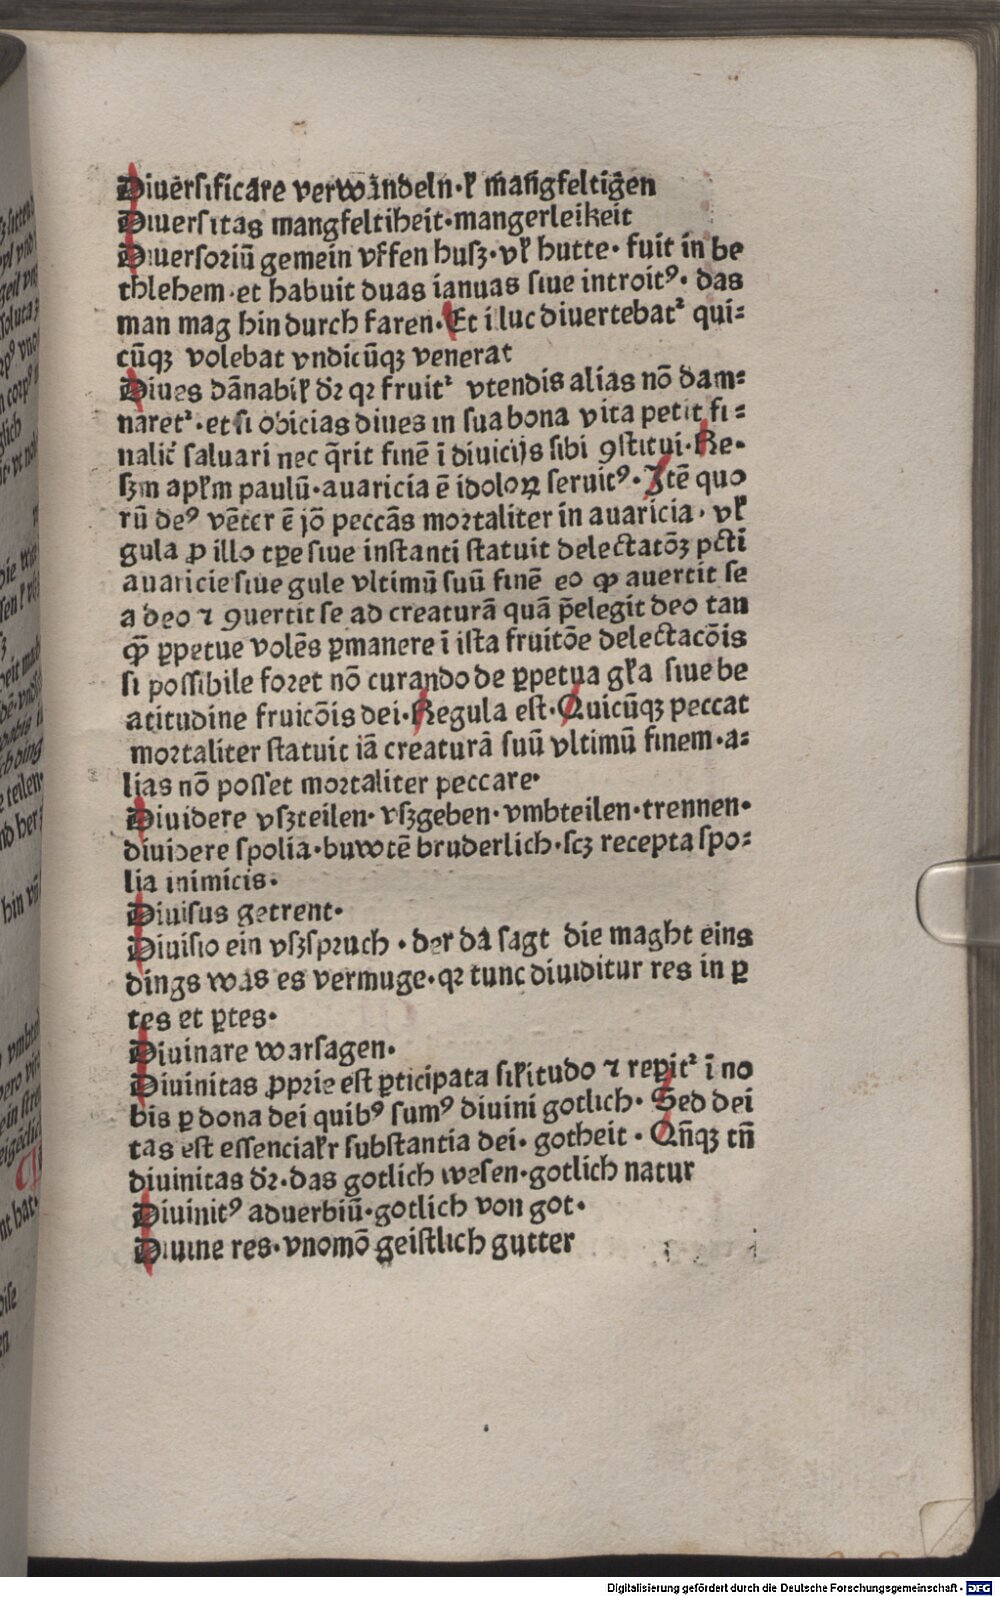 Diuersificare verwandeln·ł mangfeltigen
Diuersitas mangfeltiheit·mangerleikeit
Diuersoriū gemein vffen husz·vł hutte· fuit in be
thlehem·et habuit duas ianuas siue introitꝰ· das
man mag hin durch faren·Et illuc diuertebatᷣ qui⸗
cūqꝫ volebat vndicūqꝫ venerat
Diues dānabił dꝛ qꝛ fruitᷣ vtendis alias nō dam⸗
naretᷣ·et si obicias diues in sua bona vita petit fi⸗
nalit᷑ saluari nec q̄rit finē ī diuicijs sibi ꝯstitui·Re·
sꝫm apłm paulū·auaricia ē idoloꝝ seruitꝰ·Itē quo
rū deꝰ vēter ē jō peccās mortaliter in auaricia· vł
gula ꝓ illo tꝑe siue instanti statuit delectatōꝫ pcti
auaricie siue gule vltimū suū finē eo ꝙ auertit se
a deo ⁊ ꝯuertit se ad creaturā quā p̄elegit deo tan
ꝙ̄ ꝑpetue volēs ꝑmanere ī ista fruitōe delectacōis
si possibile foret nō curando de ꝑpetua gła siue be
atitudine fruicōis dei·Regula est·Quicūqꝫ peccat
mortaliter statuit iā creaturā suū vltimū finem·a⸗
lias nō posset mortaliter peccare·
Diuidere vszteilen·vszgeben·vmbteilen·trennen·
diuidere spolia·buwtē bruderlich·scꝫ recepta spo⸗
lia inimicis·
Diuisus getrent·
Diuisio ein vszspruch·der da sagt die maght eins
dings was es vermuge·qꝛ tunc diuiditur res in ꝑ
tes et ꝑtes·
Diuinare warsagen·
Diuinitas ꝓprie est ꝑticipata siłitudo ⁊ reꝑitᷣ ī no
bis ꝑ dona dei quibꝰ sumꝰ diuini gotlich·Sed dei
tas est essenciałr substantia dei·gotheit·Qn̄qꝫ tn̄
diuinitas dꝛ·das gotlich wesen·gotlich natur
Diuinitꝰ aduerbiū·gotlich von got·
Diuine res·vnomō geistlich gutter
Digitalisierung gefördert durch die Deutsche Forschungsgemeinschaft - DFG